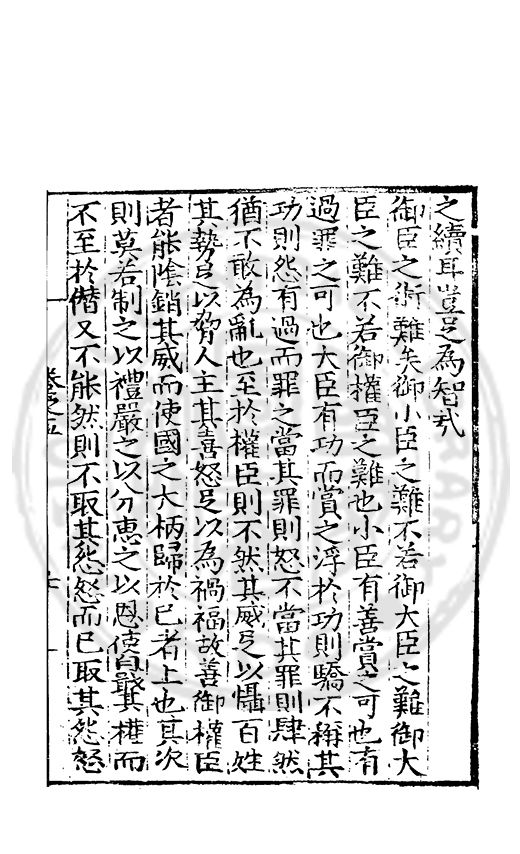 之續耳豈足為智哉
御臣之術難矣御小臣之難不若御大臣之難御大
臣之難不若御權臣之難也小臣有善賞之可也有
過罪之可也大臣有功而賞之浮於功則驕不稱其
功則怨有過而罪之當其罪則怒不當其罪則肆然
猶不敢為亂也至於權臣則不然其威足以懾百姓
其勢足以脅人主其喜怒足以為禍福故善御權臣
者能陰銷其威而使國之大柄歸於已者上也其次
則莫若制之以禮嚴之以分恵之以恩使自戢其權而
不至於僭又不能然則不取其怨怒而已取其怨怒